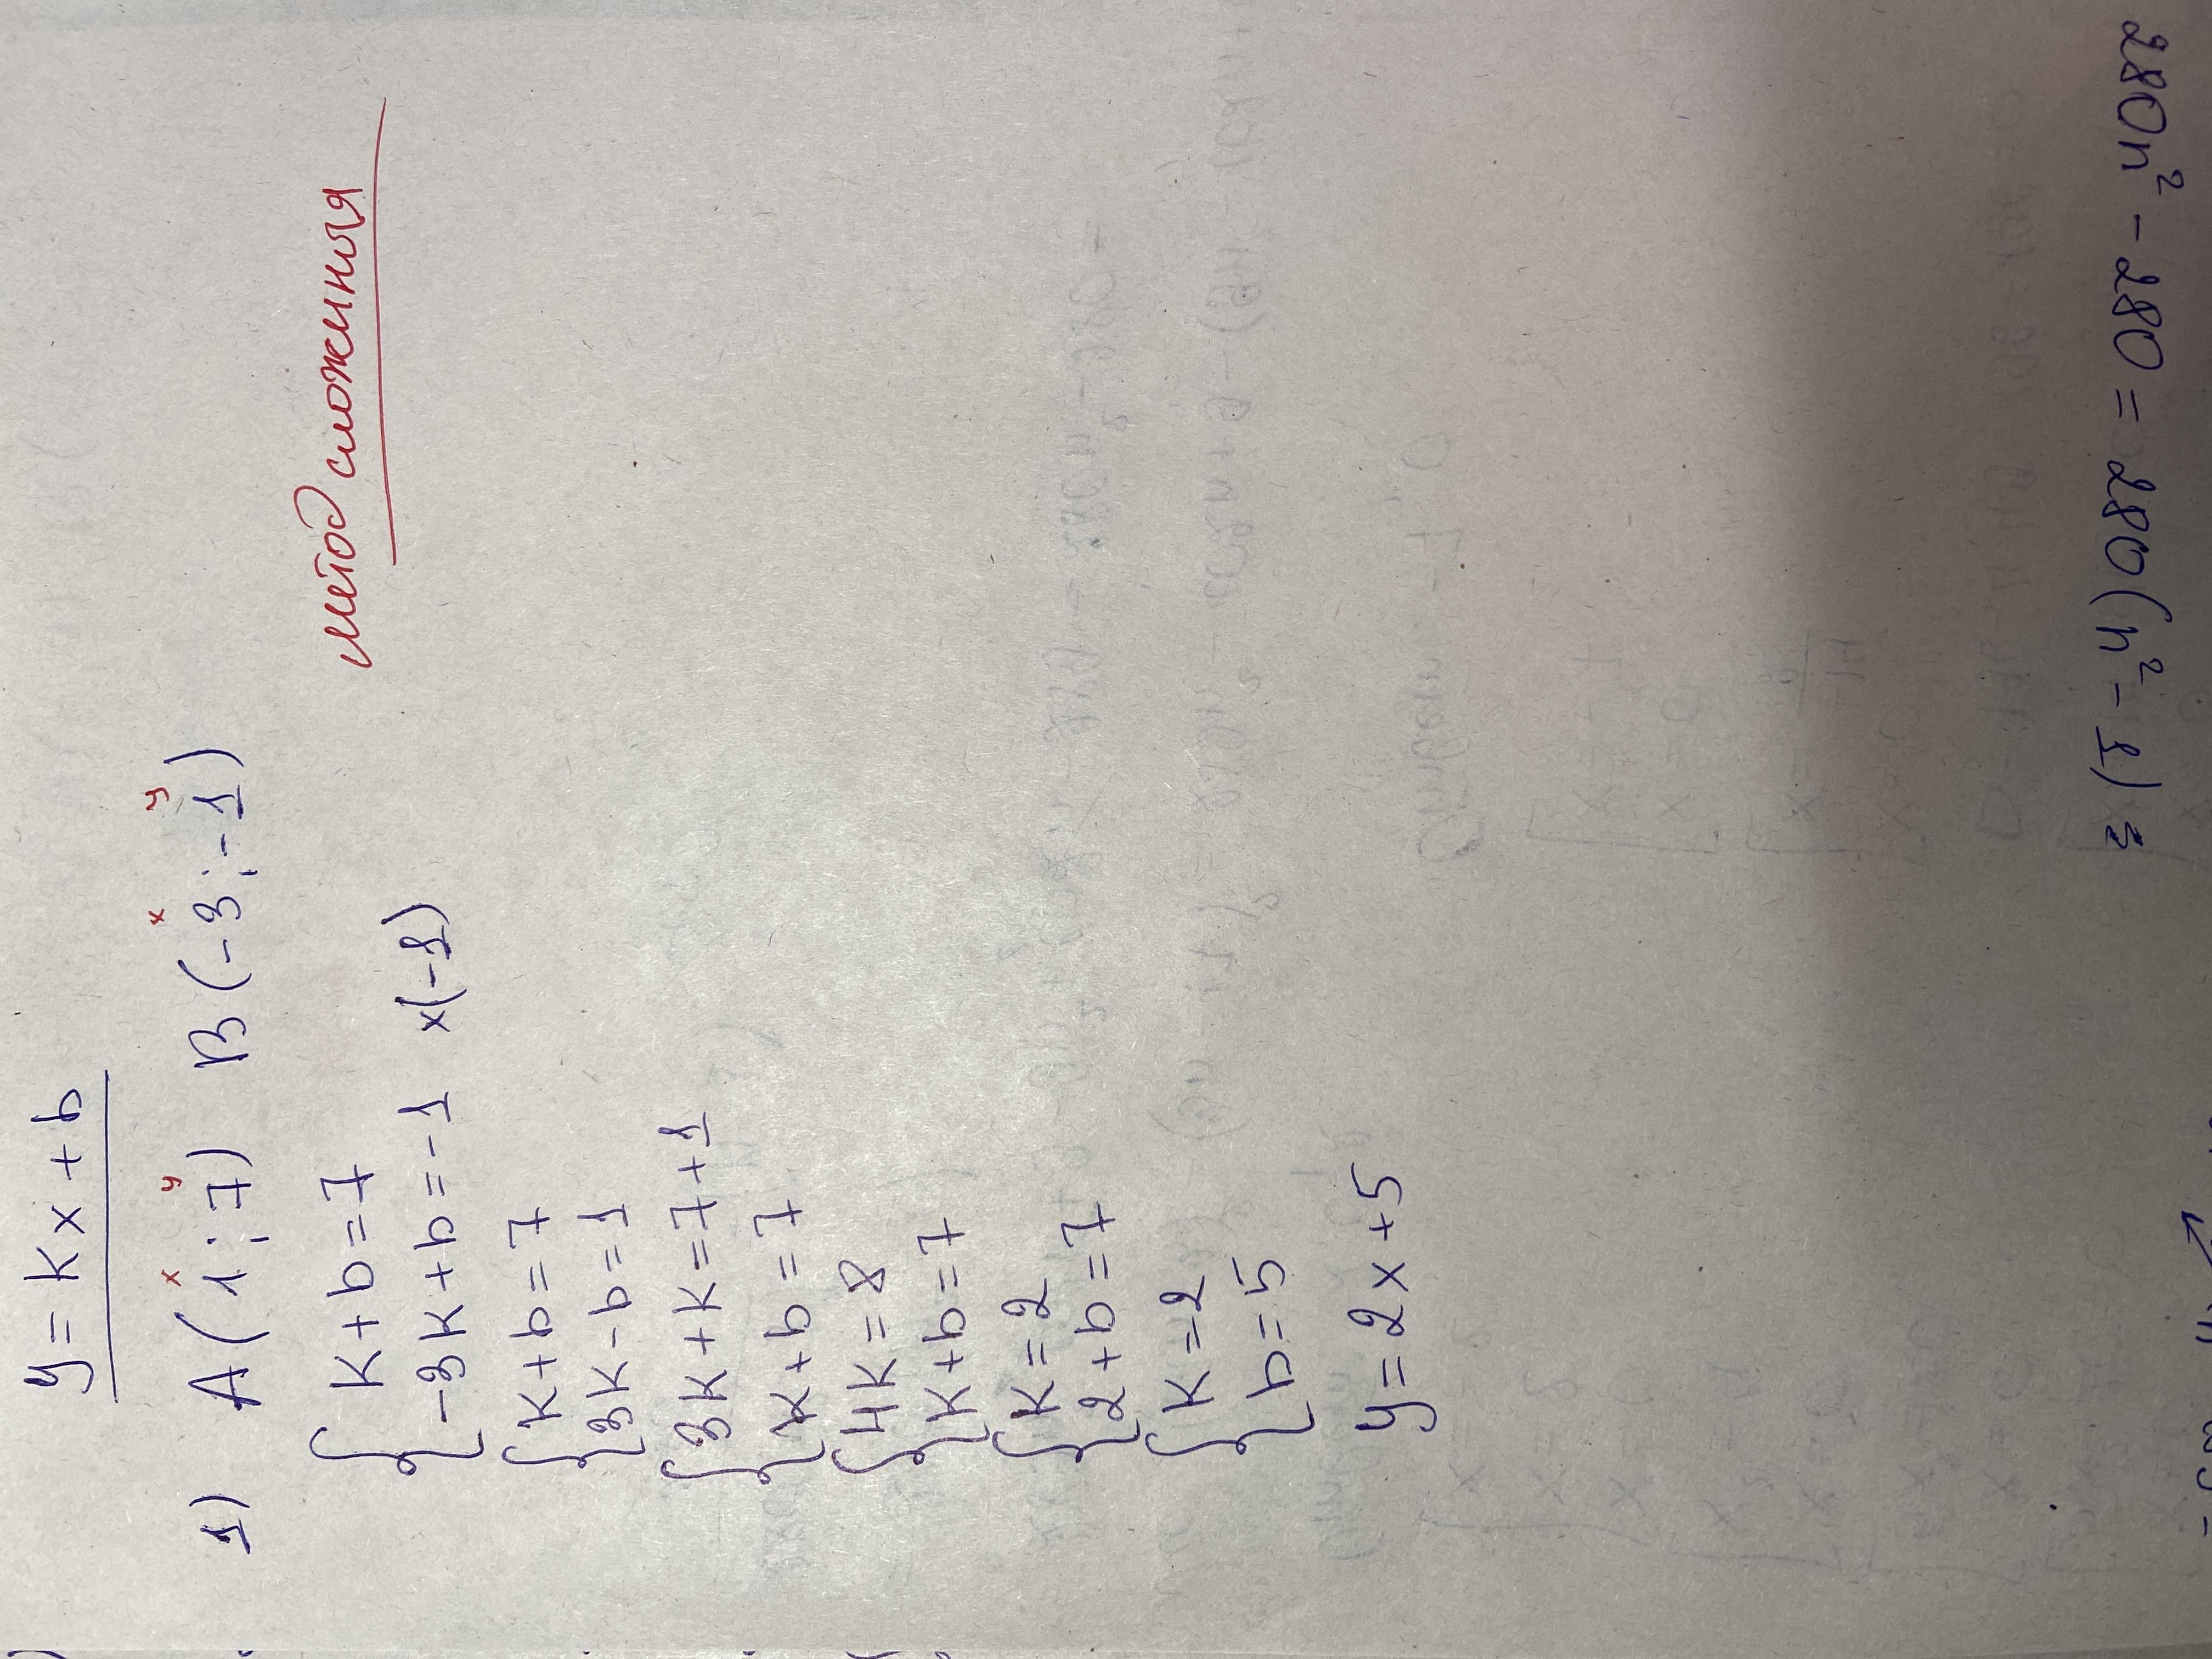 y = kx + b
1) A(1;7) B(-3;-1)
x y x y
{ k + b = 7
-3k + b = -1 x(-1)
метод сложения
{ k + b = 7
3k - b = 1
{ 3k + k = 7 + 1
k + b = 7
{ 4k = 8
k + b = 7
{ k = 2
2 + b = 7
{ k = 2
b = 5
y = 2x + 5
280n² - 280 = 280(n² - 1) =